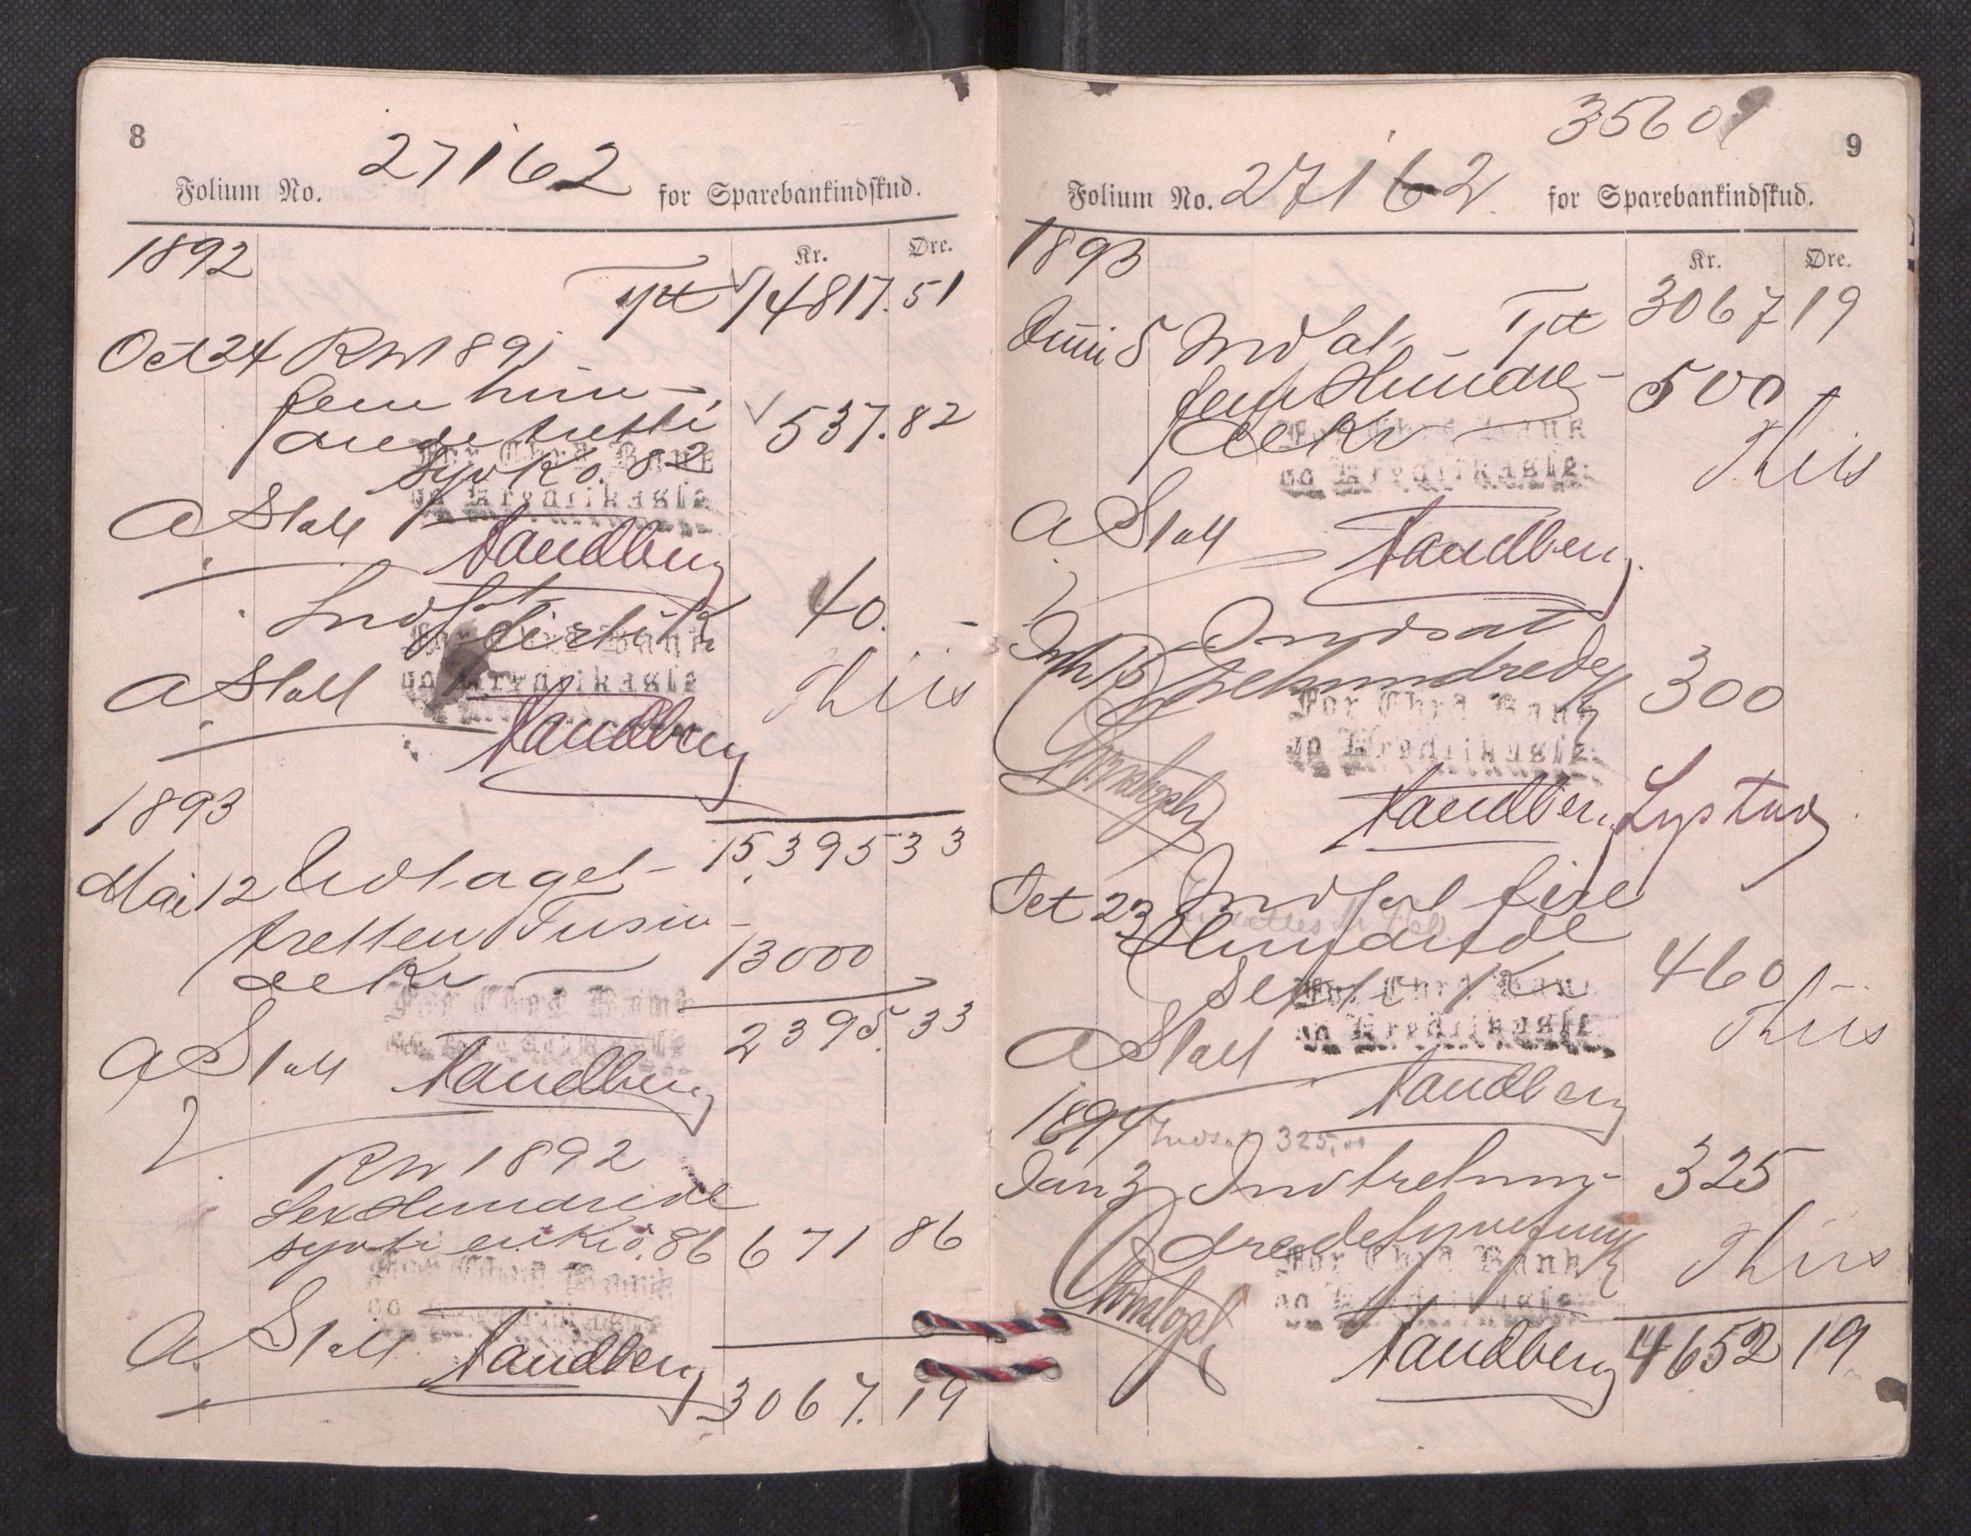 8
27162
Folium No. for Sparebankindskud.
1892
Kr. Øre.
Tptt 14817.51
Oct 24 RM 1891
fem hun-
drede tretti
syv Kr. 82 537.82
For Chra Bank
og Kreditkasse
A Stall Sandberg
Indsat
firti K 40. -
For Chra Bank
og Kreditkasse
A Stall Thiis
Sandberg
1893
15,395 33
Mai 12 Udtaget
tretten Tusin-
de Kr 13000
For Chra Bank
og Kreditkasse
2395.33
A Stall Sandberg
RM 1892
Sex Hundrede
sytti en Kr. 86 671 86
For Chra Bank
og Kreditkasse
A. Stall Sandberg
3067.19
35601
9
Folium No. 27162 for Sparebankindskud.
1893
Kr. Øre.
Tptt 3067 19
Juni 5 Indsat
fem Hundre-
de Kr 500 -
For Chra Bank
og Kreditkasse
Thiis
A Stall
Sandberg
Indsat
trehundrede K 300
For Chra Bank
og Kreditkasse
Sandberg Lystad
Oct 23 Indsat fire
Hundrede
sexti K 460 -
For Chra Bank
og Kreditkasse
Thiis
A Stall
Sandberg
1894
Indsat 325,00
Jan 3 Ind trehun- 325
dredetyvefem K
For Chra Bank
og Kreditkasse
Thiis
Sandberg 4652 19